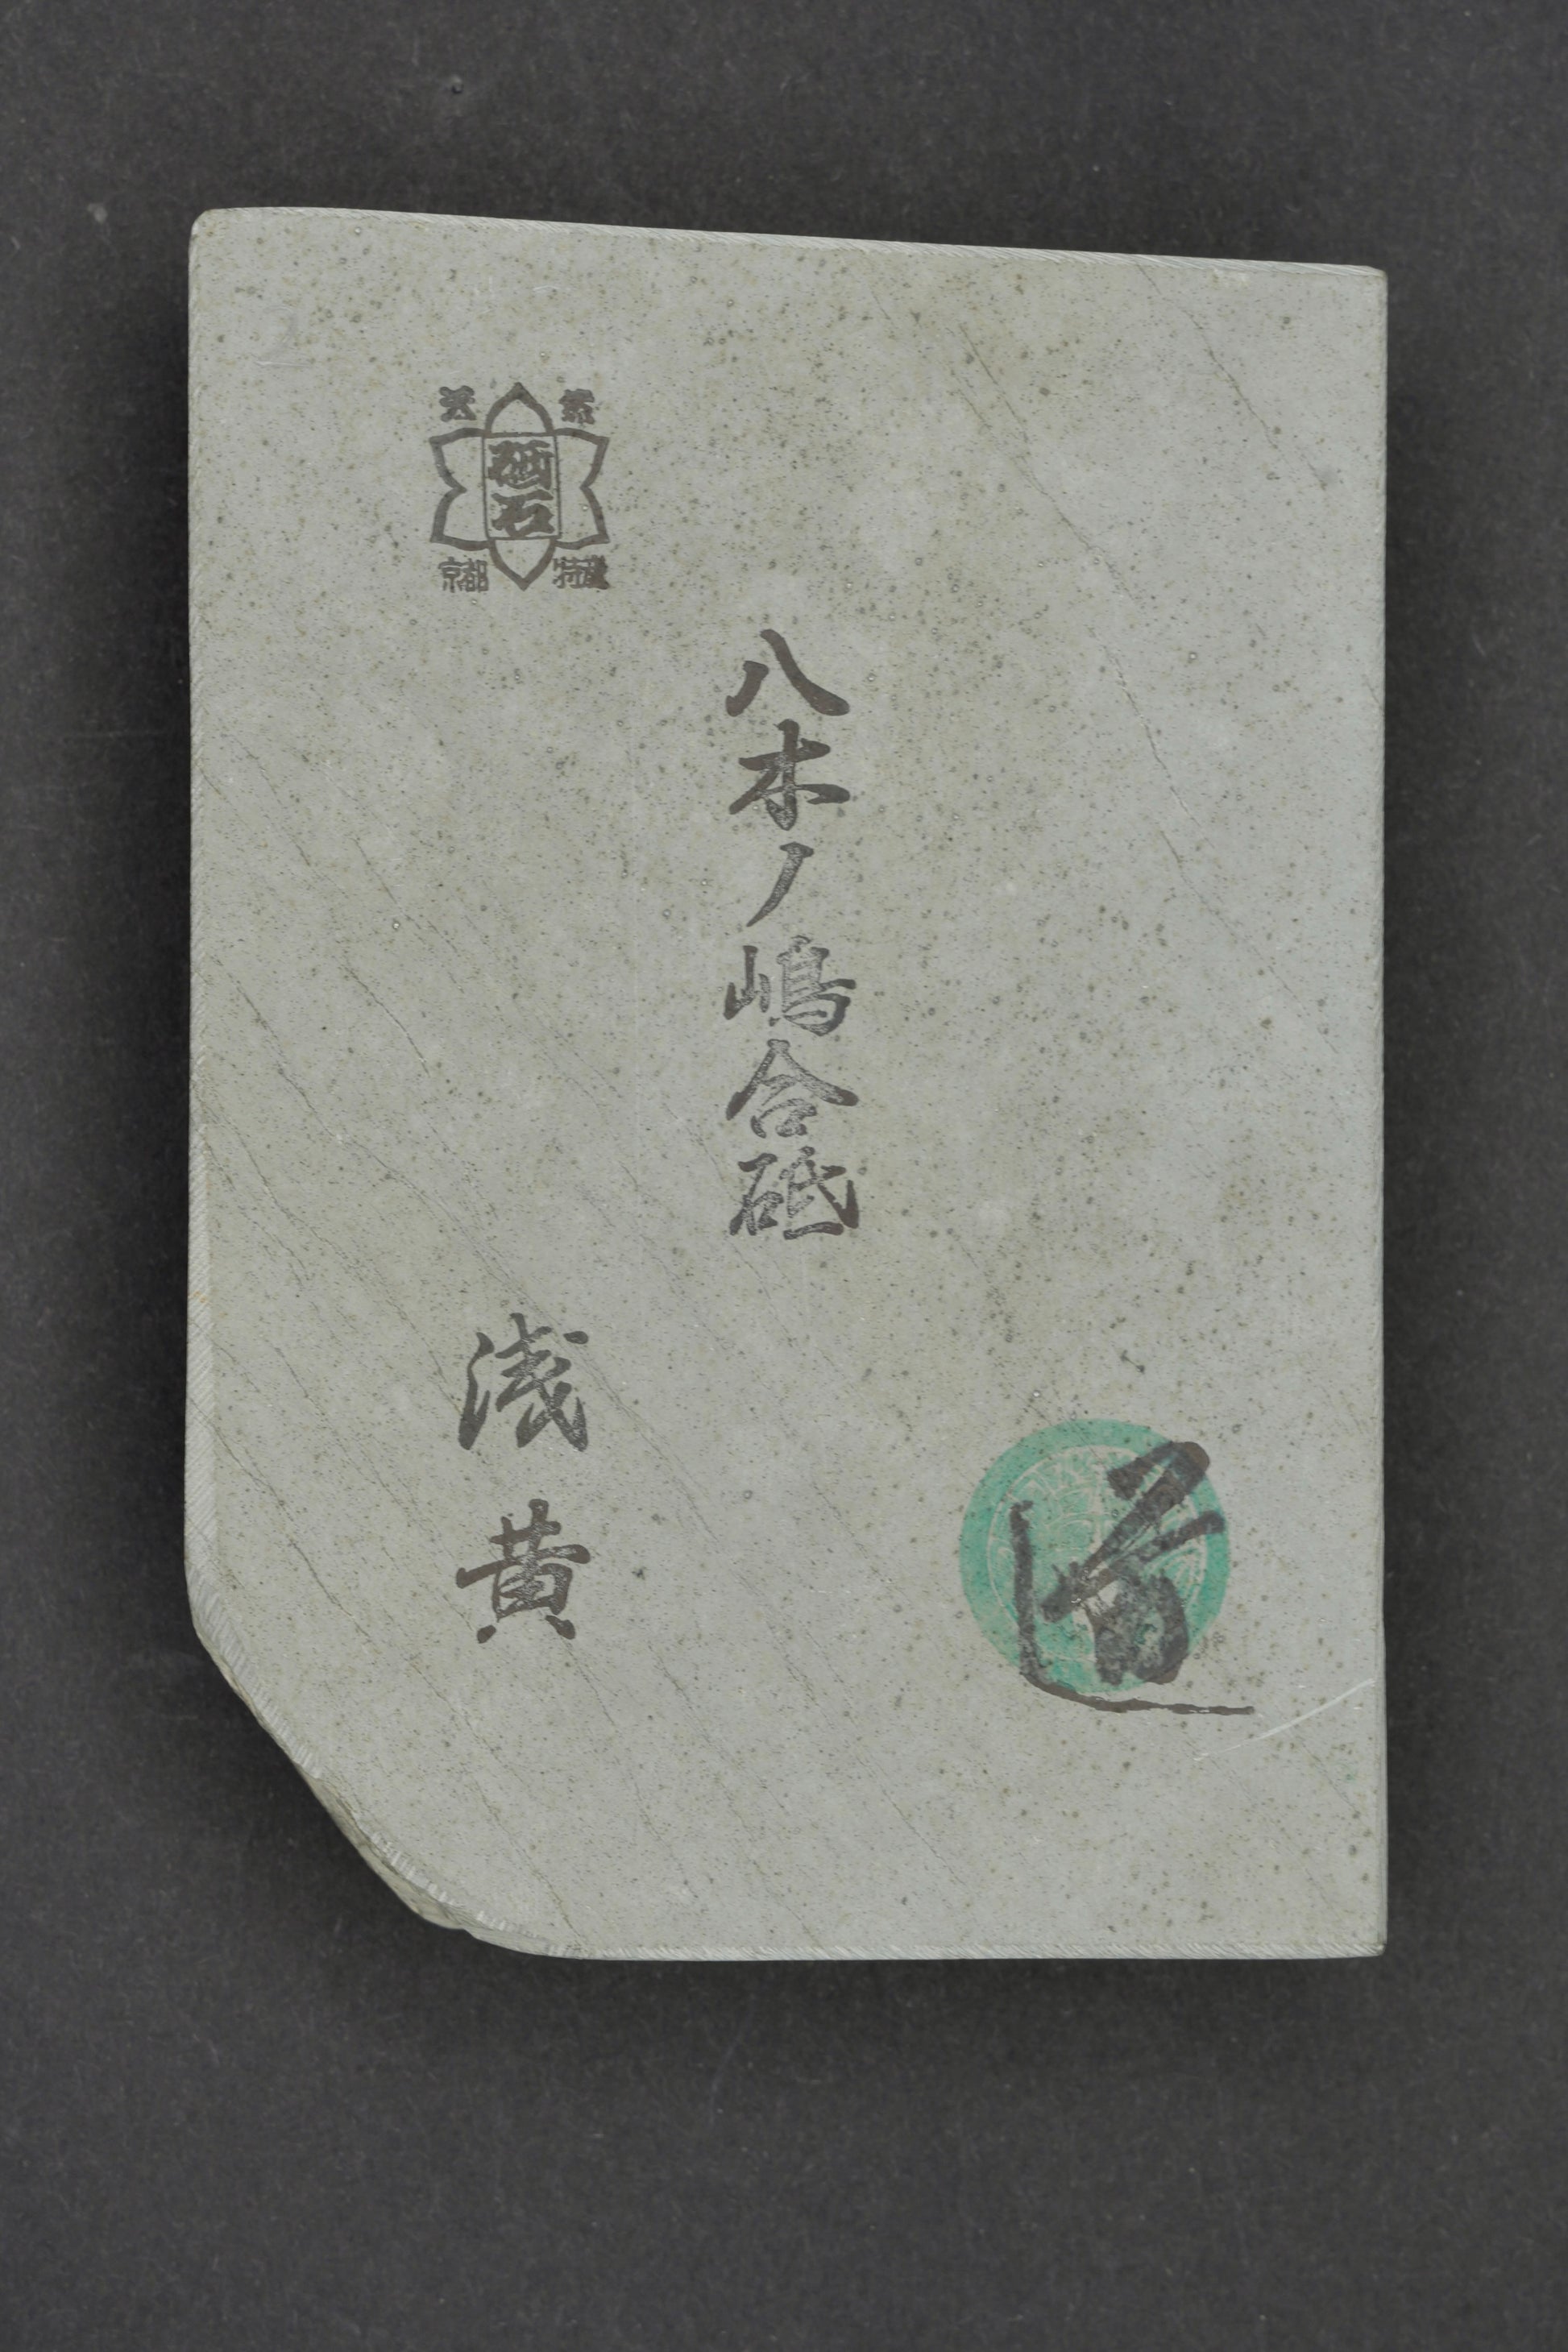 砥石
京都 特産
八木ノ嶋合砥
浅黄